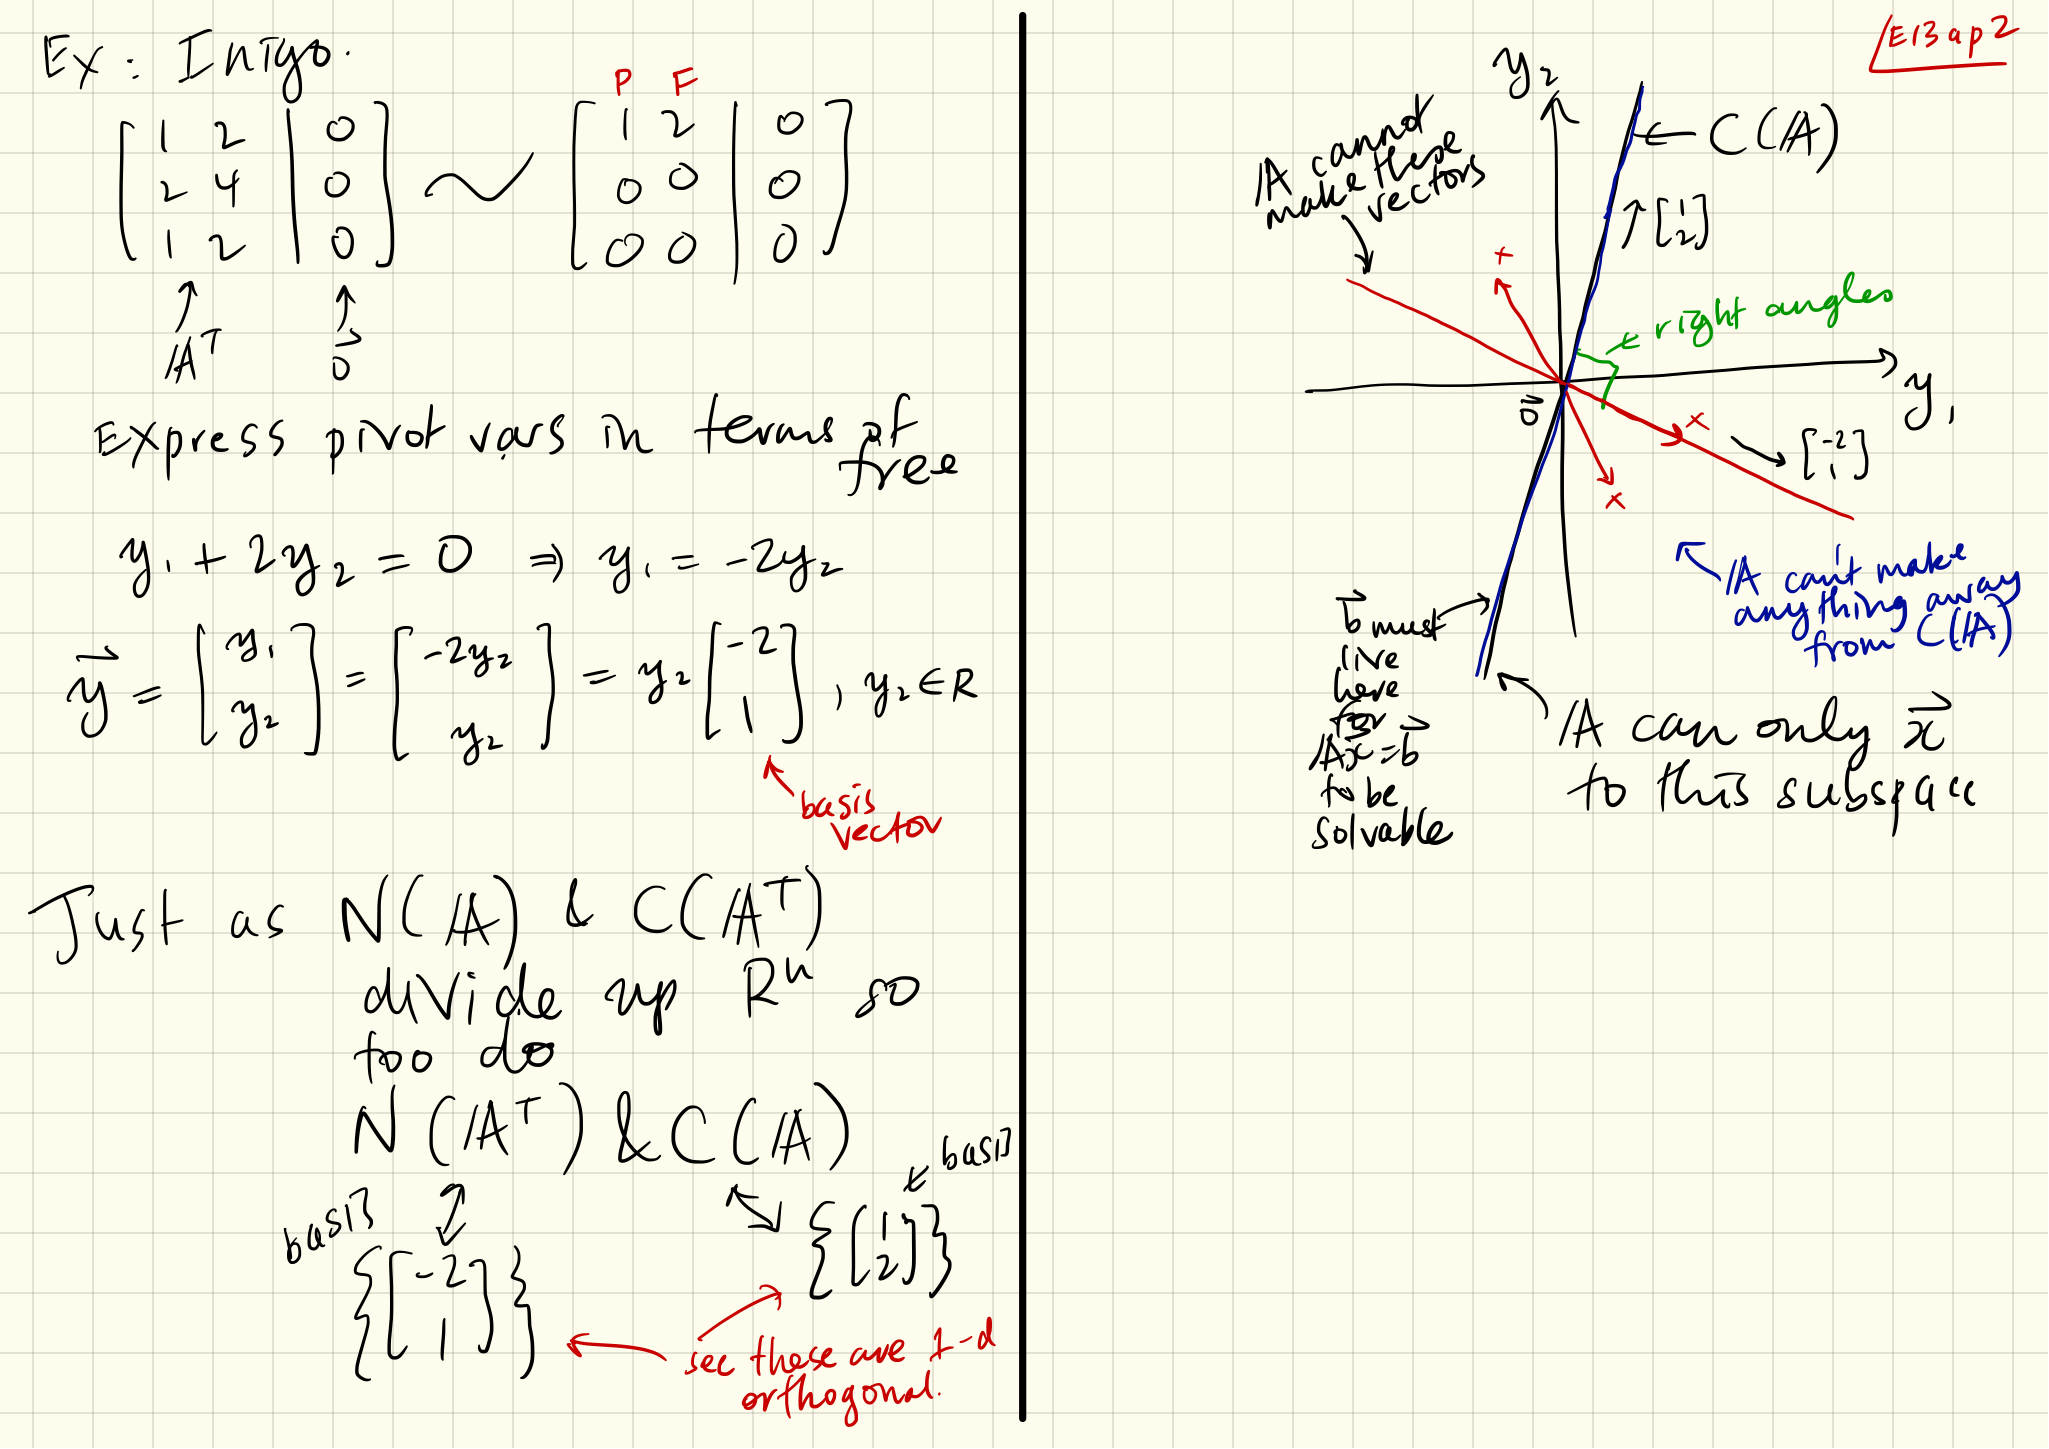 Ex: Inigo.
P F
[ 1 2 | 0 ] ~ [ 1 2 | 0 ]
[ 2 4 | 0 ] [ 0 0 | 0 ]
[ 1 2 | 0 ] [ 0 0 | 0 ]
↑ ↑
𝔸ᵀ 0⃗
Express pivot vars in terms of
free
y₁ + 2y₂ = 0 ⇒ y₁ = -2y₂
y⃗ = [y₁ y₂] = [-2y₂ y₂] = y₂ [-2 1], y₂ ∈ R
basis
vector
Just as N(𝔸) & C(𝔸ᵀ)
divide up Rⁿ so
too do
N(𝔸ᵀ) & C(𝔸)
basis {[-2 1]}
{[1 2]} ← basis
see these are 1-d
orthogonal.
E13ap2
y₂
← C(𝔸)
𝔸 cannot
make these
vectors
↗ [1 2]
x
← right angles
y₁
0⃗
x
[-2 1]
x
𝔸 can't make
anything away
from C(𝔸)
b⃗ must
live
here
for
𝔸x⃗ = b⃗
to be
solvable
𝔸 can only x⃗
to this subspace